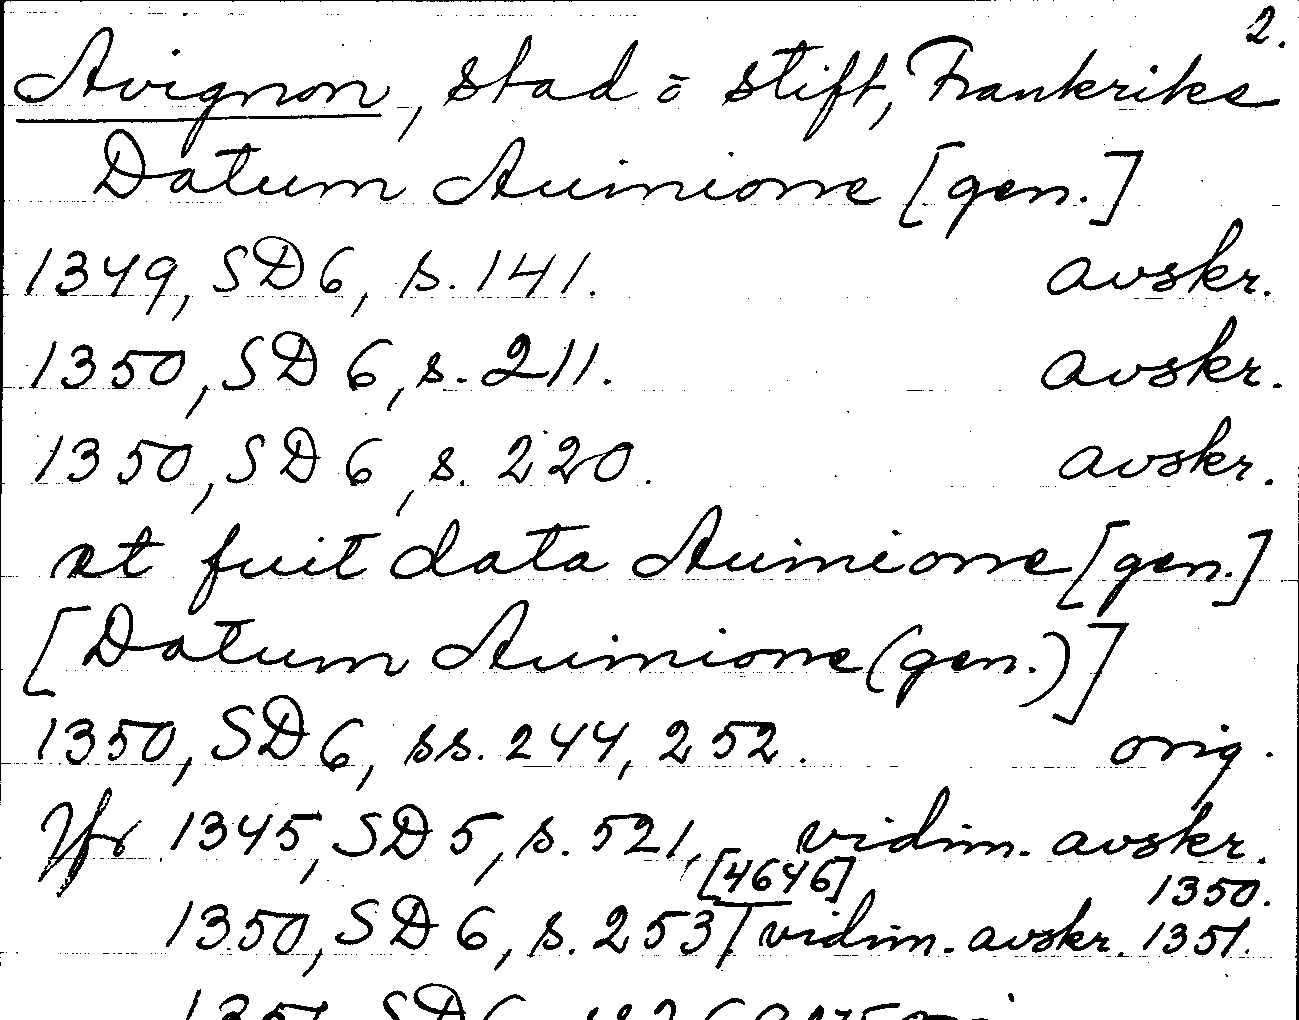 2.
Avignon, stad o stift, Frankrike
Datum Auinione [gen.]
1349, SD 6, s. 141. avskr.
1350, SD 6, s. 211. avskr.
1350, SD 6, s. 220. avskr.
et fuit data Auinione [gen.]
[Datum Auinione (gen.)]
1350, SD 6, ss. 244, 252. orig.
Jfr 1345, SD 5, s. 521, vidim. avskr.
[4646] 1350.
1350, SD 6, s. 253 / vidim. avskr. 1351.
1351, SD 6,